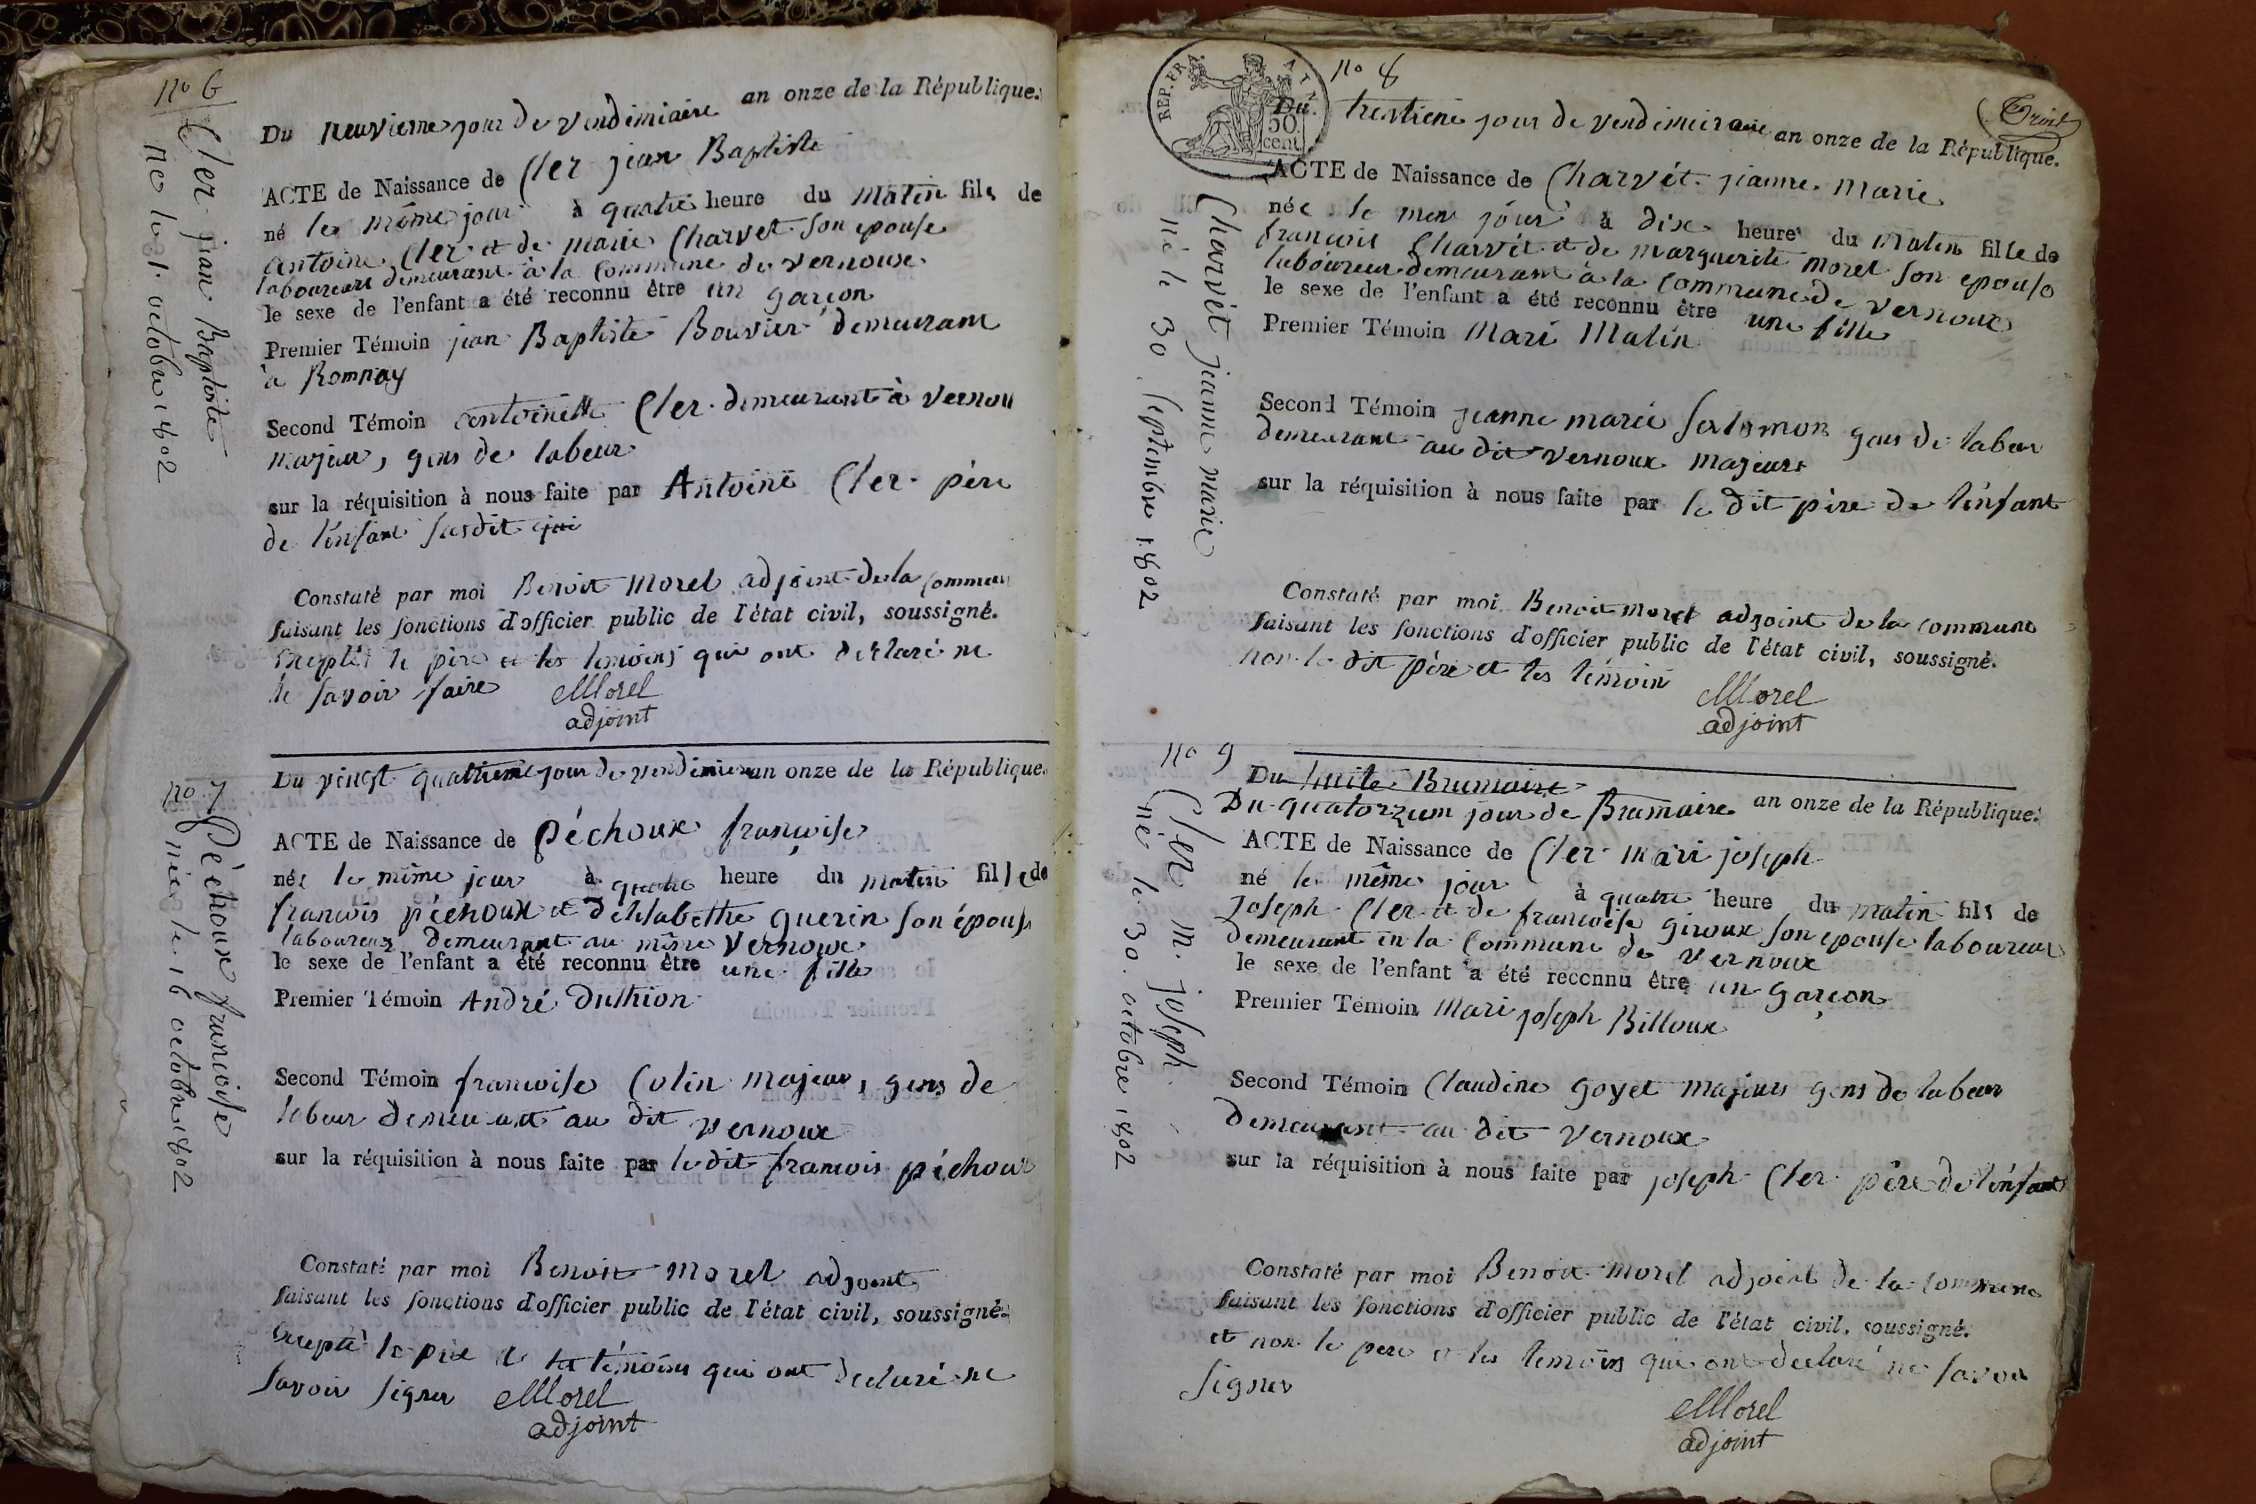 no 6
Cler jean Baptiste
né le 1. octobre 1802
Du neuvieme jour de vendemiaire an onze de la République.
ACTE de Naissance de Cler jean Baptiste
né le même jour à quatre heure du matin fils de
antoine Cler et de marie Charvet son epouse
laboureurs demeurant à la Commune de vernoux
le sexe de l'enfant a été reconnu être un garçon
Premier Témoin jean Baptiste Bouvier demeurant
à Romnay
Second Témoin antoinette Cler demeurant à vernou
majeur, gens de labeur
sur la réquisition à nous faite par Antoine Cler père
de l'enfant susdit qui
Constaté par moi Benoit Morel adjoint de la commun
faisant les fonctions d'officier public de l'état civil, soussigné.
excepté le père et les temoins qui ont declaré ne
le savoir faire
Morel
adjoint
no 7
Péchoux francoise
née le 16 octobre 1802
Du vingt quatrieme jour de vendemiere an onze de la République.
ACTE de Naissance de Péchoux françoise
née le même jour à quatre heure du matin fille de
francois péchoux et d'elisabethe guerin son épous
laboureur demeurant au même vernoux
le sexe de l'enfant a été reconnu être une fille
Premier Témoin André Duthion
Second Témoin francoise Colin majeur, gens de
labeur demeurant au dit vernoux
sur la réquisition à nous faite par le dit francois péchoux
Constaté par moi Benoit Morel adjoint
faisant les fonctions d'officier public de l'état civil, soussigné.
excepté le père et les témoins qui ont declaré ne
savoir signer
Morel
adjoint
REP. FRA
50
cent.
no 8
Charvét jeanne marie
né le 30 septembre 1802
Du trentiene jour de vendemeiraire an onze de la République.
ACTE de Naissance de Charvét jeanne Marie
née le mem jour à dix heure du matin fille de
francois Charvét et de marguerite morel son epouse
laboureur demeurant à la Commune de vernoux
le sexe de l'enfant a été reconnu être une fille
Premier Témoin Mari Matin
Second Témoin jeanne marie Salomon gens de labeur
demeurant au dit vernoux majeurs
sur la réquisition à nous faite par le dit père de l'enfant
Constaté par moi Benoit morel adjoint de la commune
faisant les fonctions d'officier public de l'état civil, soussigné.
non le dit père et les témoin
Morel
adjoint
no 9
Cler m. joseph
né le 30. octobre 1802
Du huite Brumaire
Du quatorzzem jour de Brumaire an onze de la République.
ACTE de Naissance de Cler mari joseph
né le même jour à quatre heure du matin fils de
Joseph Cler et de francoise giroux son epouse laboureur
demeurant en la Commune de vernoux
le sexe de l'enfant a été reconnu être un garçon
Premier Témoin Mari joseph Billoux
Second Témoin Claudine goyet majeurs gens de labeur
demeurant au dit vernoux
sur la réquisition à nous faite par joseph Cler père de l'enfant
Constaté par moi Benoit morel adjoint de la commune
faisant les fonctions d'officier public de l'état civil, soussigné.
et non le pere et les temoins qui ont declaré ne savoir
signer
Morel
adjoint